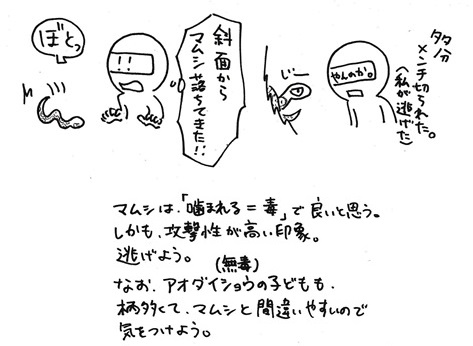 ぼとっ
!!
斜面から
マムシ落ちてきた!!
じー
やんのか。
多分
メンチ切られた。
(私が逃げた)
マムシは、「噛まれる=毒」で良いと思う。
しかも、攻撃性が高い印象。
逃げよう。
(無毒)
なお、アオダイショウの子どもも、
柄多くて、マムシと間違いやすいので
気をつけよう。